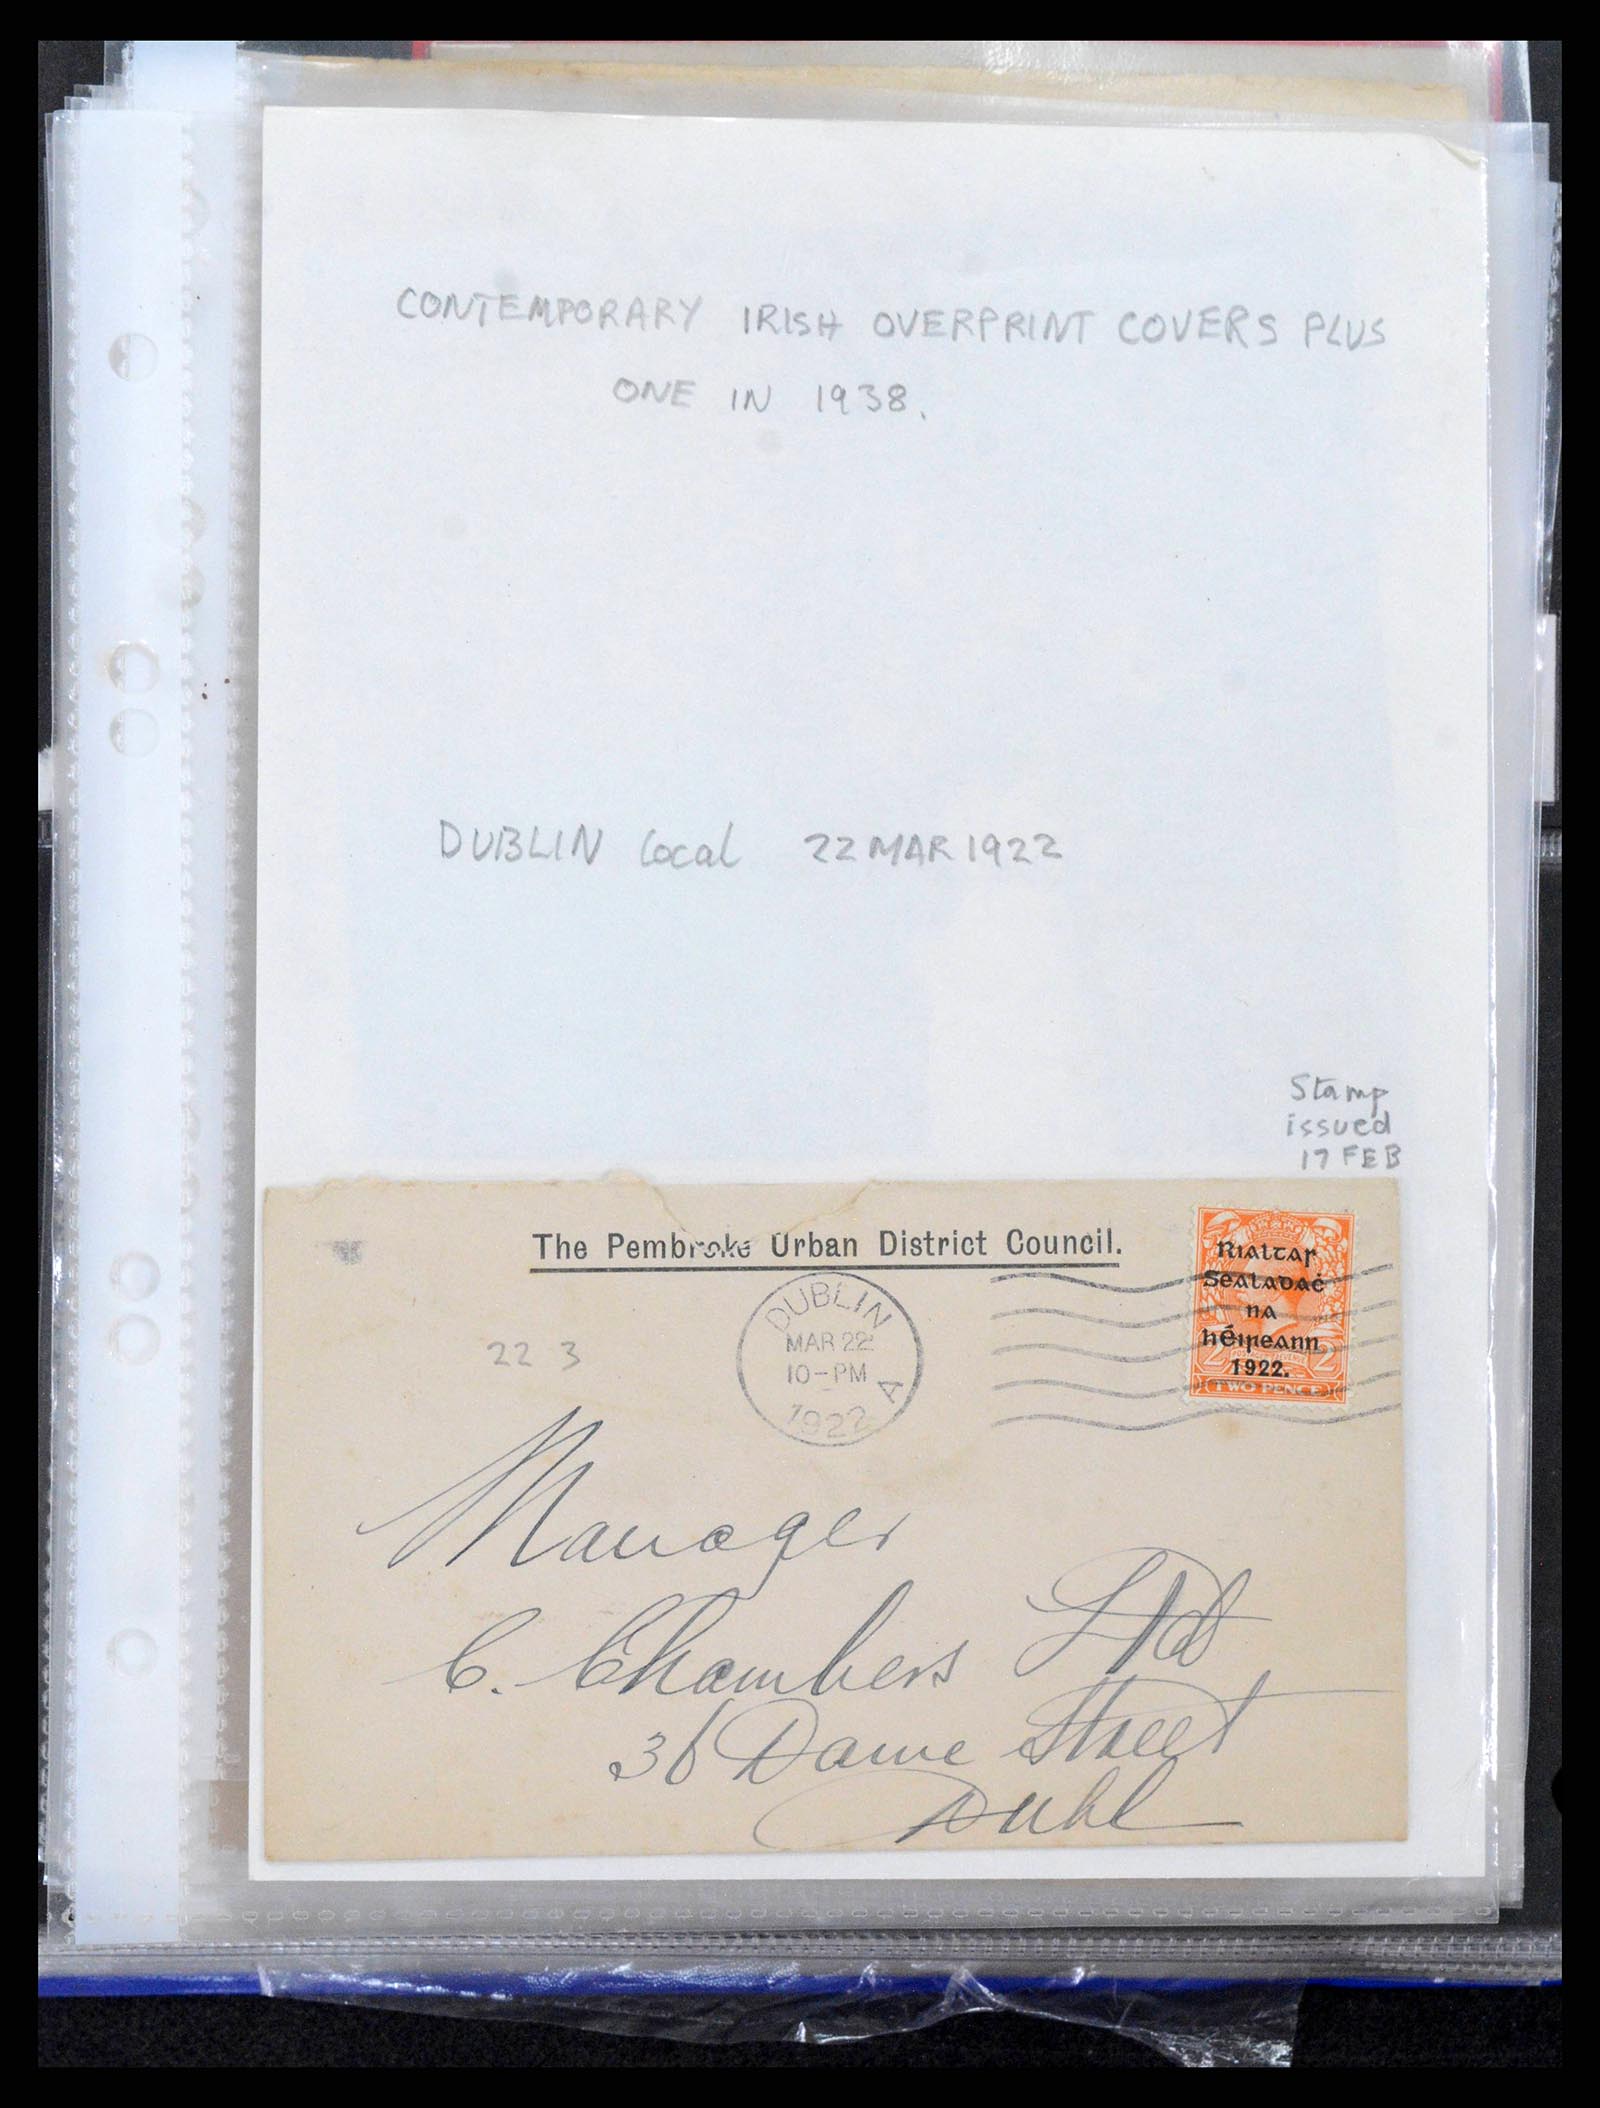 CONTEMPORARY IRISH OVERPRINT COVERS PLUS
ONE IN 1938.
DUBLIN local 22 MAR 1922
Stamp
issued
17 FEB
The Pembroke Urban District Council.
Rialtas
Sealadaċ
na
hÉireann
1922.
2 POSTAGE REVENUE 2
TWO PENCE
DUBLIN
MAR 22
10-PM
1922 A
22 3
Manager
C. Chambers Ltd
36 Dame Street
Dubl